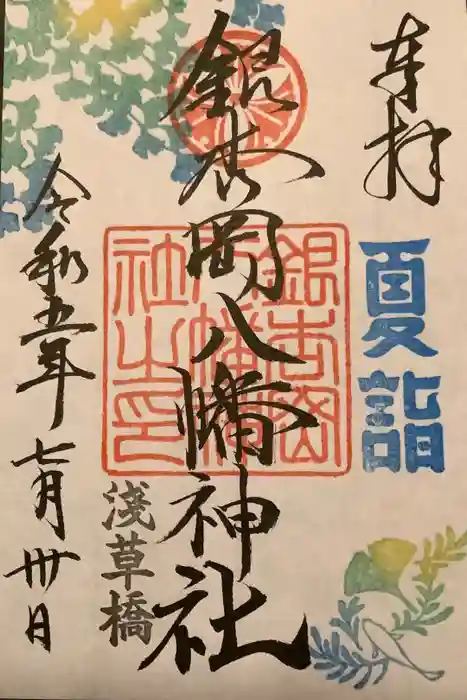 奉拝
夏詣
銀杏岡八幡神社
銀杏岡八幡神社之印
浅草橋
令和五年七月卅日